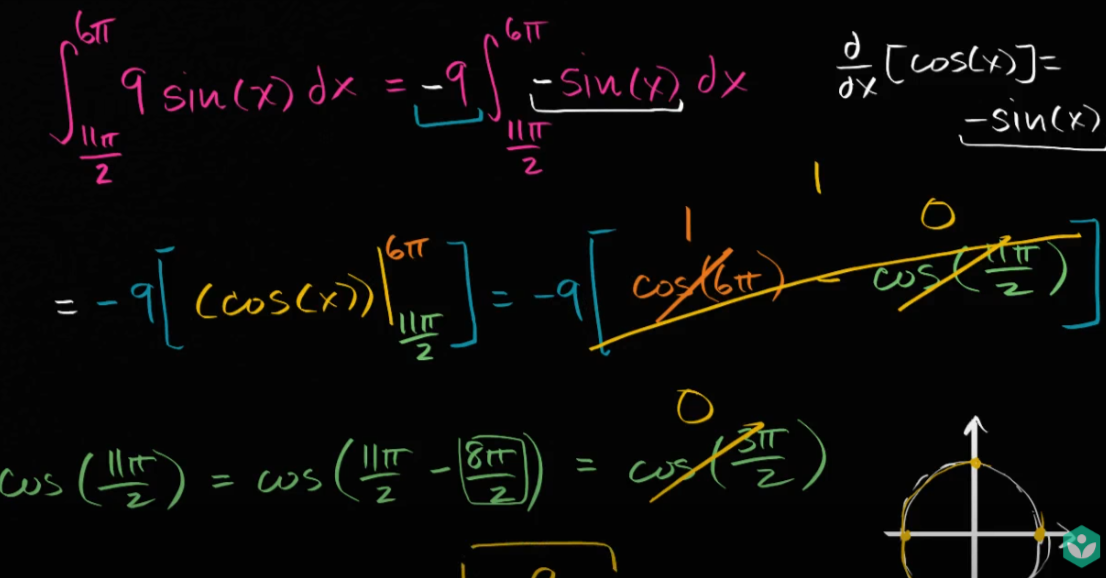 ∫_{11π/2}^{6π} 9 sin(x) dx = -9 ∫_{11π/2}^{6π} -sin(x) dx
d/dx [cos(x)] =
-sin(x)
1
1 0
= -9 [ (cos(x)) |_{11π/2}^{6π} ] = -9 [ cos(6π) - cos(11π/2) ]
0
cos(11π/2) = cos(11π/2 - 8π/2) = cos(3π/2)